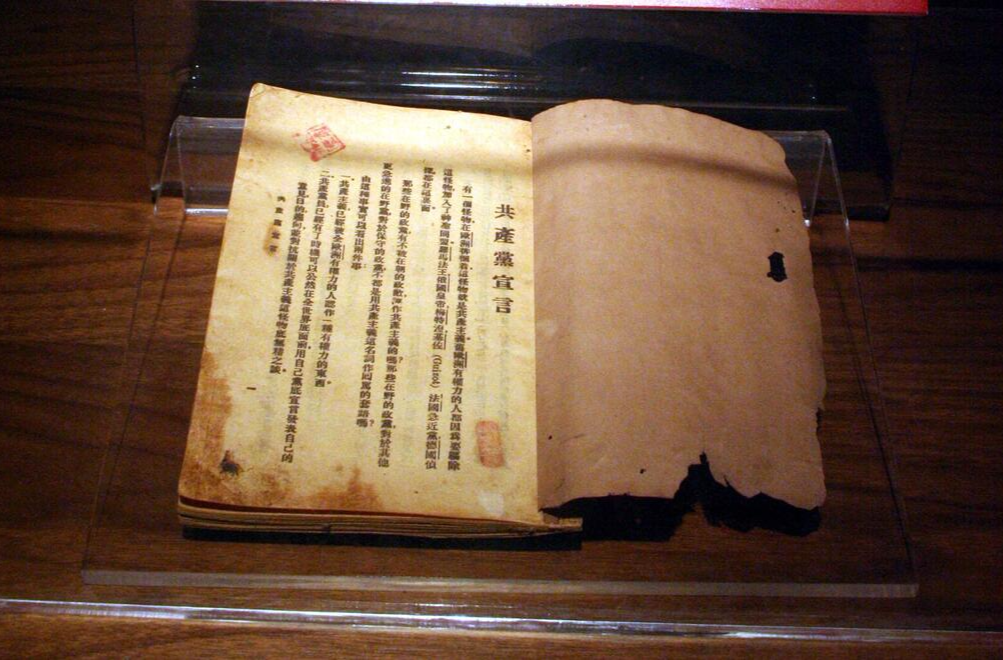 共產黨宣言
有一個怪物、在歐洲徘徊着、這怪物就是共產主義。舊歐洲有權力的人都因爲要驅除
這怪物、加入了神聖同盟。羅馬法王、俄國皇帝、梅特涅、基佐(Guizot)法國急近黨、德國偵
探、都在這裏面。
那些在野的政黨、有不被在朝的政敵、誣作共產主義的嗎?那些在野的政黨、對於其他
更急進的在野黨、對於保守的政黨、不都是用共產主義這名詞作回罵的套語嗎?
由這種事實可以看出兩件事
一、共產主義、已經被全歐洲有權力的人認作一種有權力的東西。
二、共產黨員、已經有了時機可以公然在全世界底面前、用自己黨底宣言發表自己的
黨見目的趨向、並對抗關於共產主義這怪物底無稽之談。
共產黨宣言
一